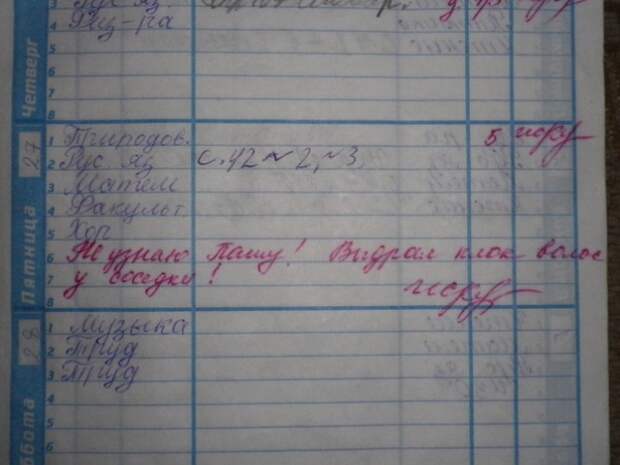 3 Рус яз.
4 Физ-ра
5
6
7
8
Четверг
27
Пятница
1 Природов. 5
2 Рус. яз с. 42 №2, №3
3 Матем
4 Факульт.
5 Хор
6 Не узнаю Пашу! Выдрал клок волос
7 у соседки!
8
28
ббота
1 Музыка
2 Труд
3 Труд
4
5
6